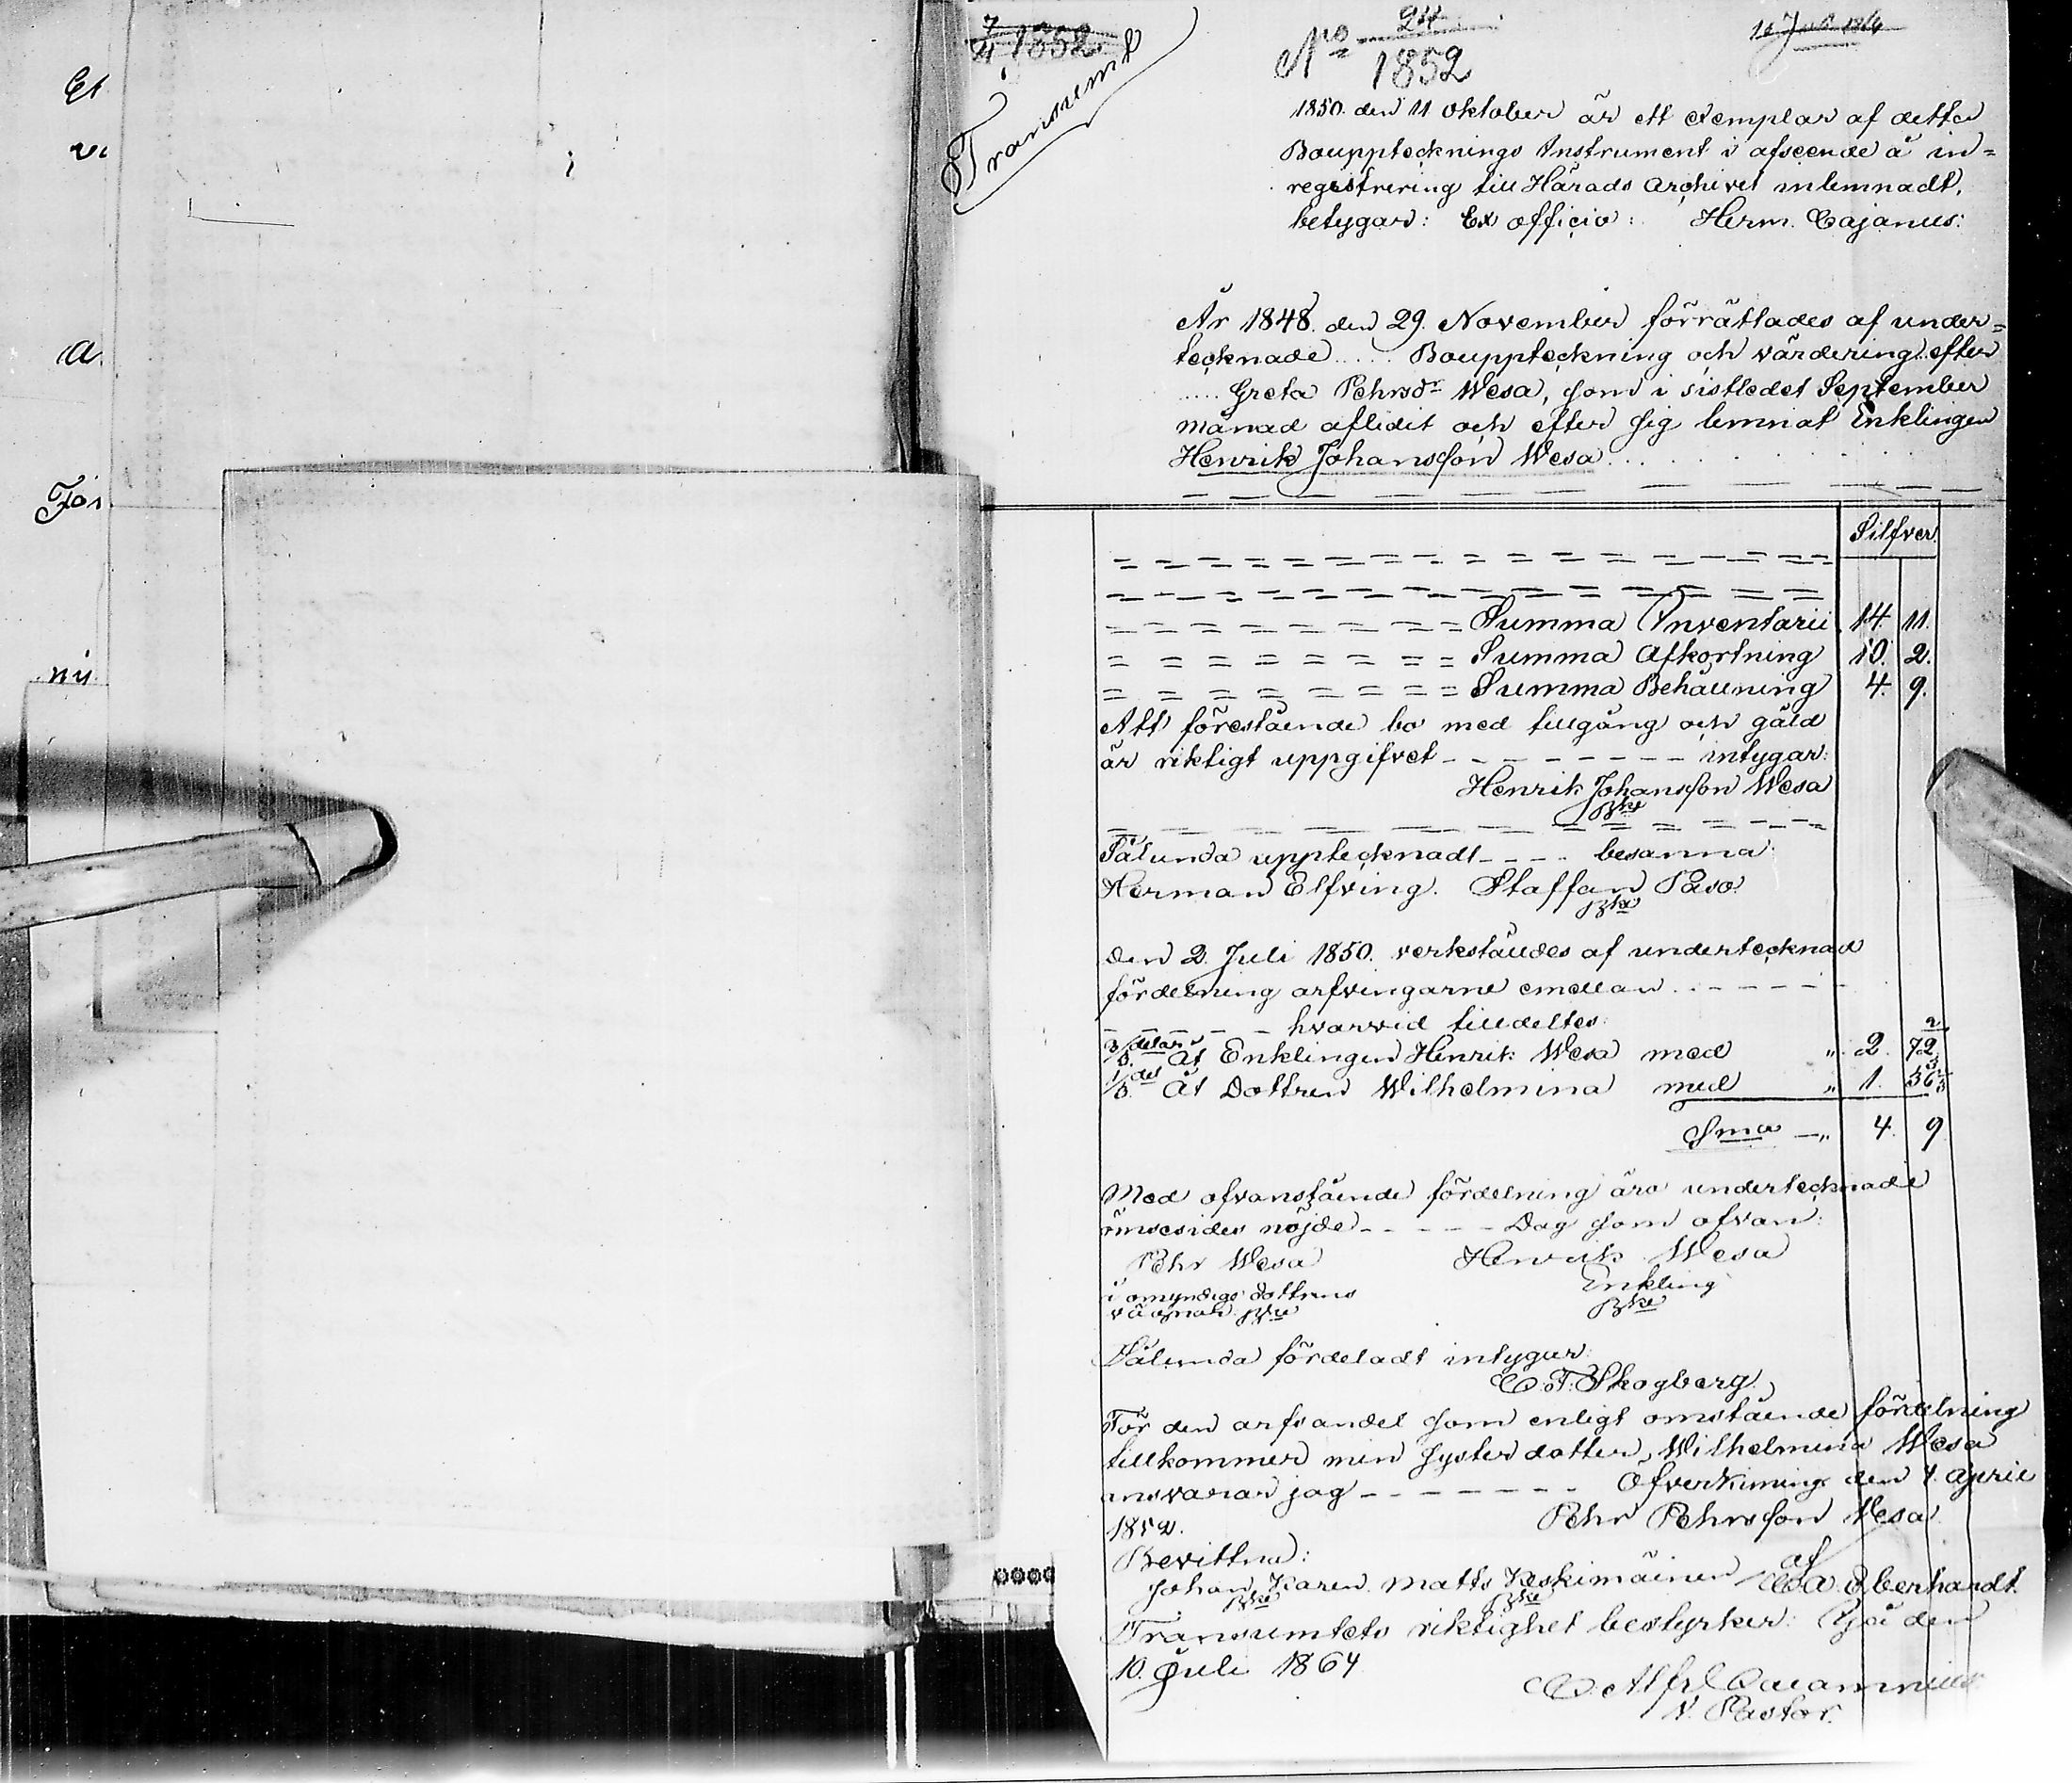 Et
vi
a.
För
nu
7/4 1852
Transumt
No 24
1852
10 Juli 1864
1850. den 11 Oktober är ett exemplar af detta
Bouppteknings Instrument i afseende å in=
registrering till Härads Archivet inlemnadt,
betygar: Ex officio: Herm. Cajanus:
År 1848. den 29. November förrättades af under=
tecknade .... Bouppteckning och värdering efter
..... Greta Pehrsdr Wesa, som i sistledet September
månad aflidit och efter sig lemnat Enklingen
Henrik Johansson Wesa
Silfver.
Summa Inventarii 14. 11.
Summa Afkortning 10. 2.
Summa Behållning 4. 9.
Att förestående bo med tillgång och gäld
är riktigt uppgifvet - - - - - - - - intygar:
Henrik Johansson Wesa
Bke
Sålunda upptecknadt - - - - besanna:
Herman Elfving. Staffan Paso.
Bke
Den 2. Juli 1850. verkställdes af undertecknad
fördelning arfvingarne emellan - - - - -
- - - - - hvarvid tilldeltes:
2/3 delar Åt Enklingen Henrik Wesa med " 2. 72 2/3
1/3 del Åt Dottren Wilhelmina med " 1. 36 1/3
Sma - " 4. 9
Med ofvanstående fördelning äro undertecknade
ömsesides nöjde - - - - - Dag som ofvan:
Pehr Wesa Henrik Wesa
i omyndiga dottrens Enkling
vägnar Bke Bke
Sålunda fördeladt intygar:
C. F. Skogberg.
För den arfsandel som enligt omstående fördelning
tillkommer min syster dotter, Wilhelmina Wesa
ansvarar jag - - - - - - - Öfverkiminge den 4. April
1852. Pehr Pehrsson Wesa
Bevittna: af
Johan Karen Matts Keskimäinen C. A. Eberhardt.
Bke Bke
Transumtets riktighet bestyrker: Ijå den
10. Juli 1864
C. Alfr. Calamnius
V. Pastor.